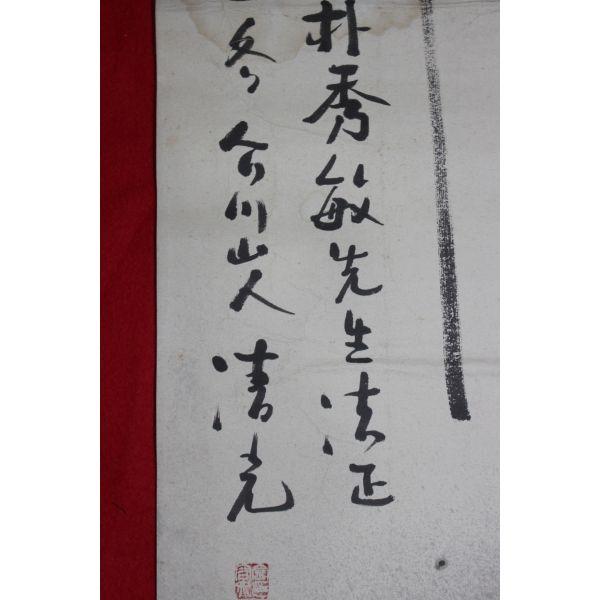 朴秀敏先生法正
冬合川山人清光